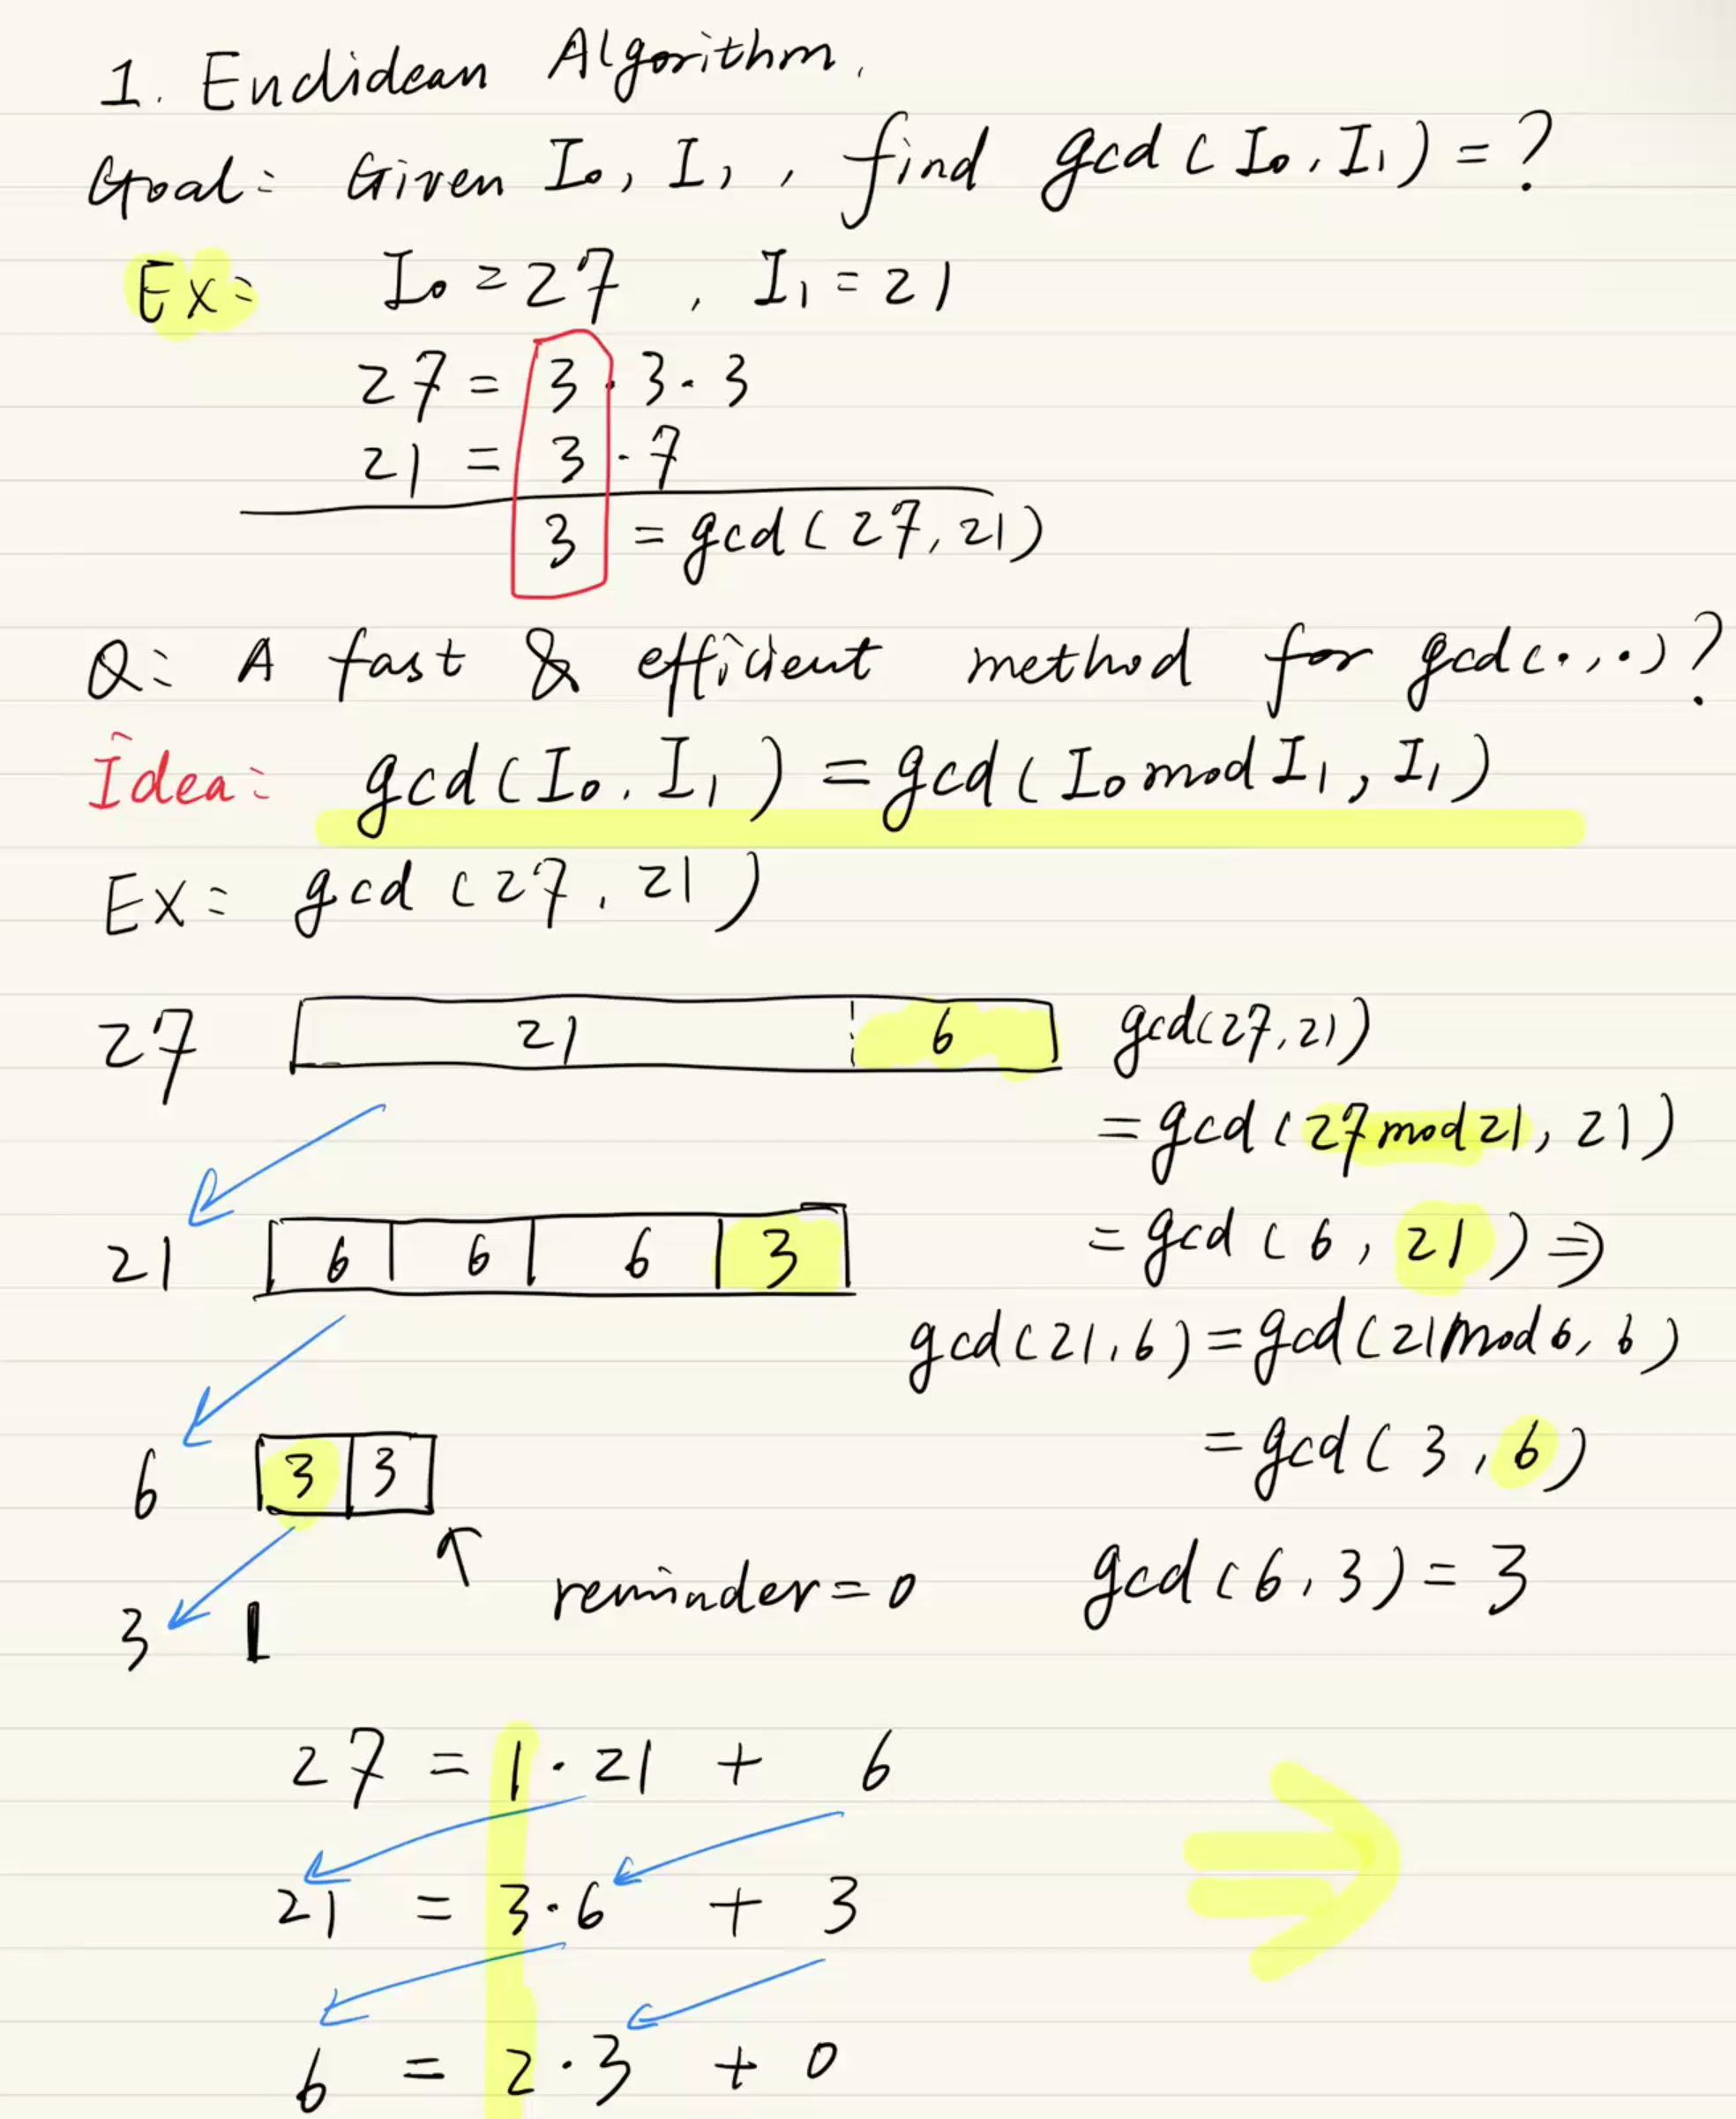 1. Euclidean Algorithm.
Goal: Given I₀, I₁, find gcd(I₀, I₁) = ?
Ex: I₀ = 27, I₁ = 21
27 = 3·3·3
21 = 3·7
3 = gcd(27, 21)
Q: A fast & efficient method for gcd(·,·)?
Idea: gcd(I₀, I₁) = gcd(I₀ mod I₁, I₁)
Ex: gcd(27, 21)
27 21 6 gcd(27, 21)
= gcd(27 mod 21, 21)
21 6 6 6 3 = gcd(6, 21) ⇒
gcd(21, 6) = gcd(21 mod 6, 6)
6 3 3 = gcd(3, 6)
reminder = 0 gcd(6, 3) = 3
3
27 = 1·21 + 6
21 = 3·6 + 3
6 = 2·3 + 0